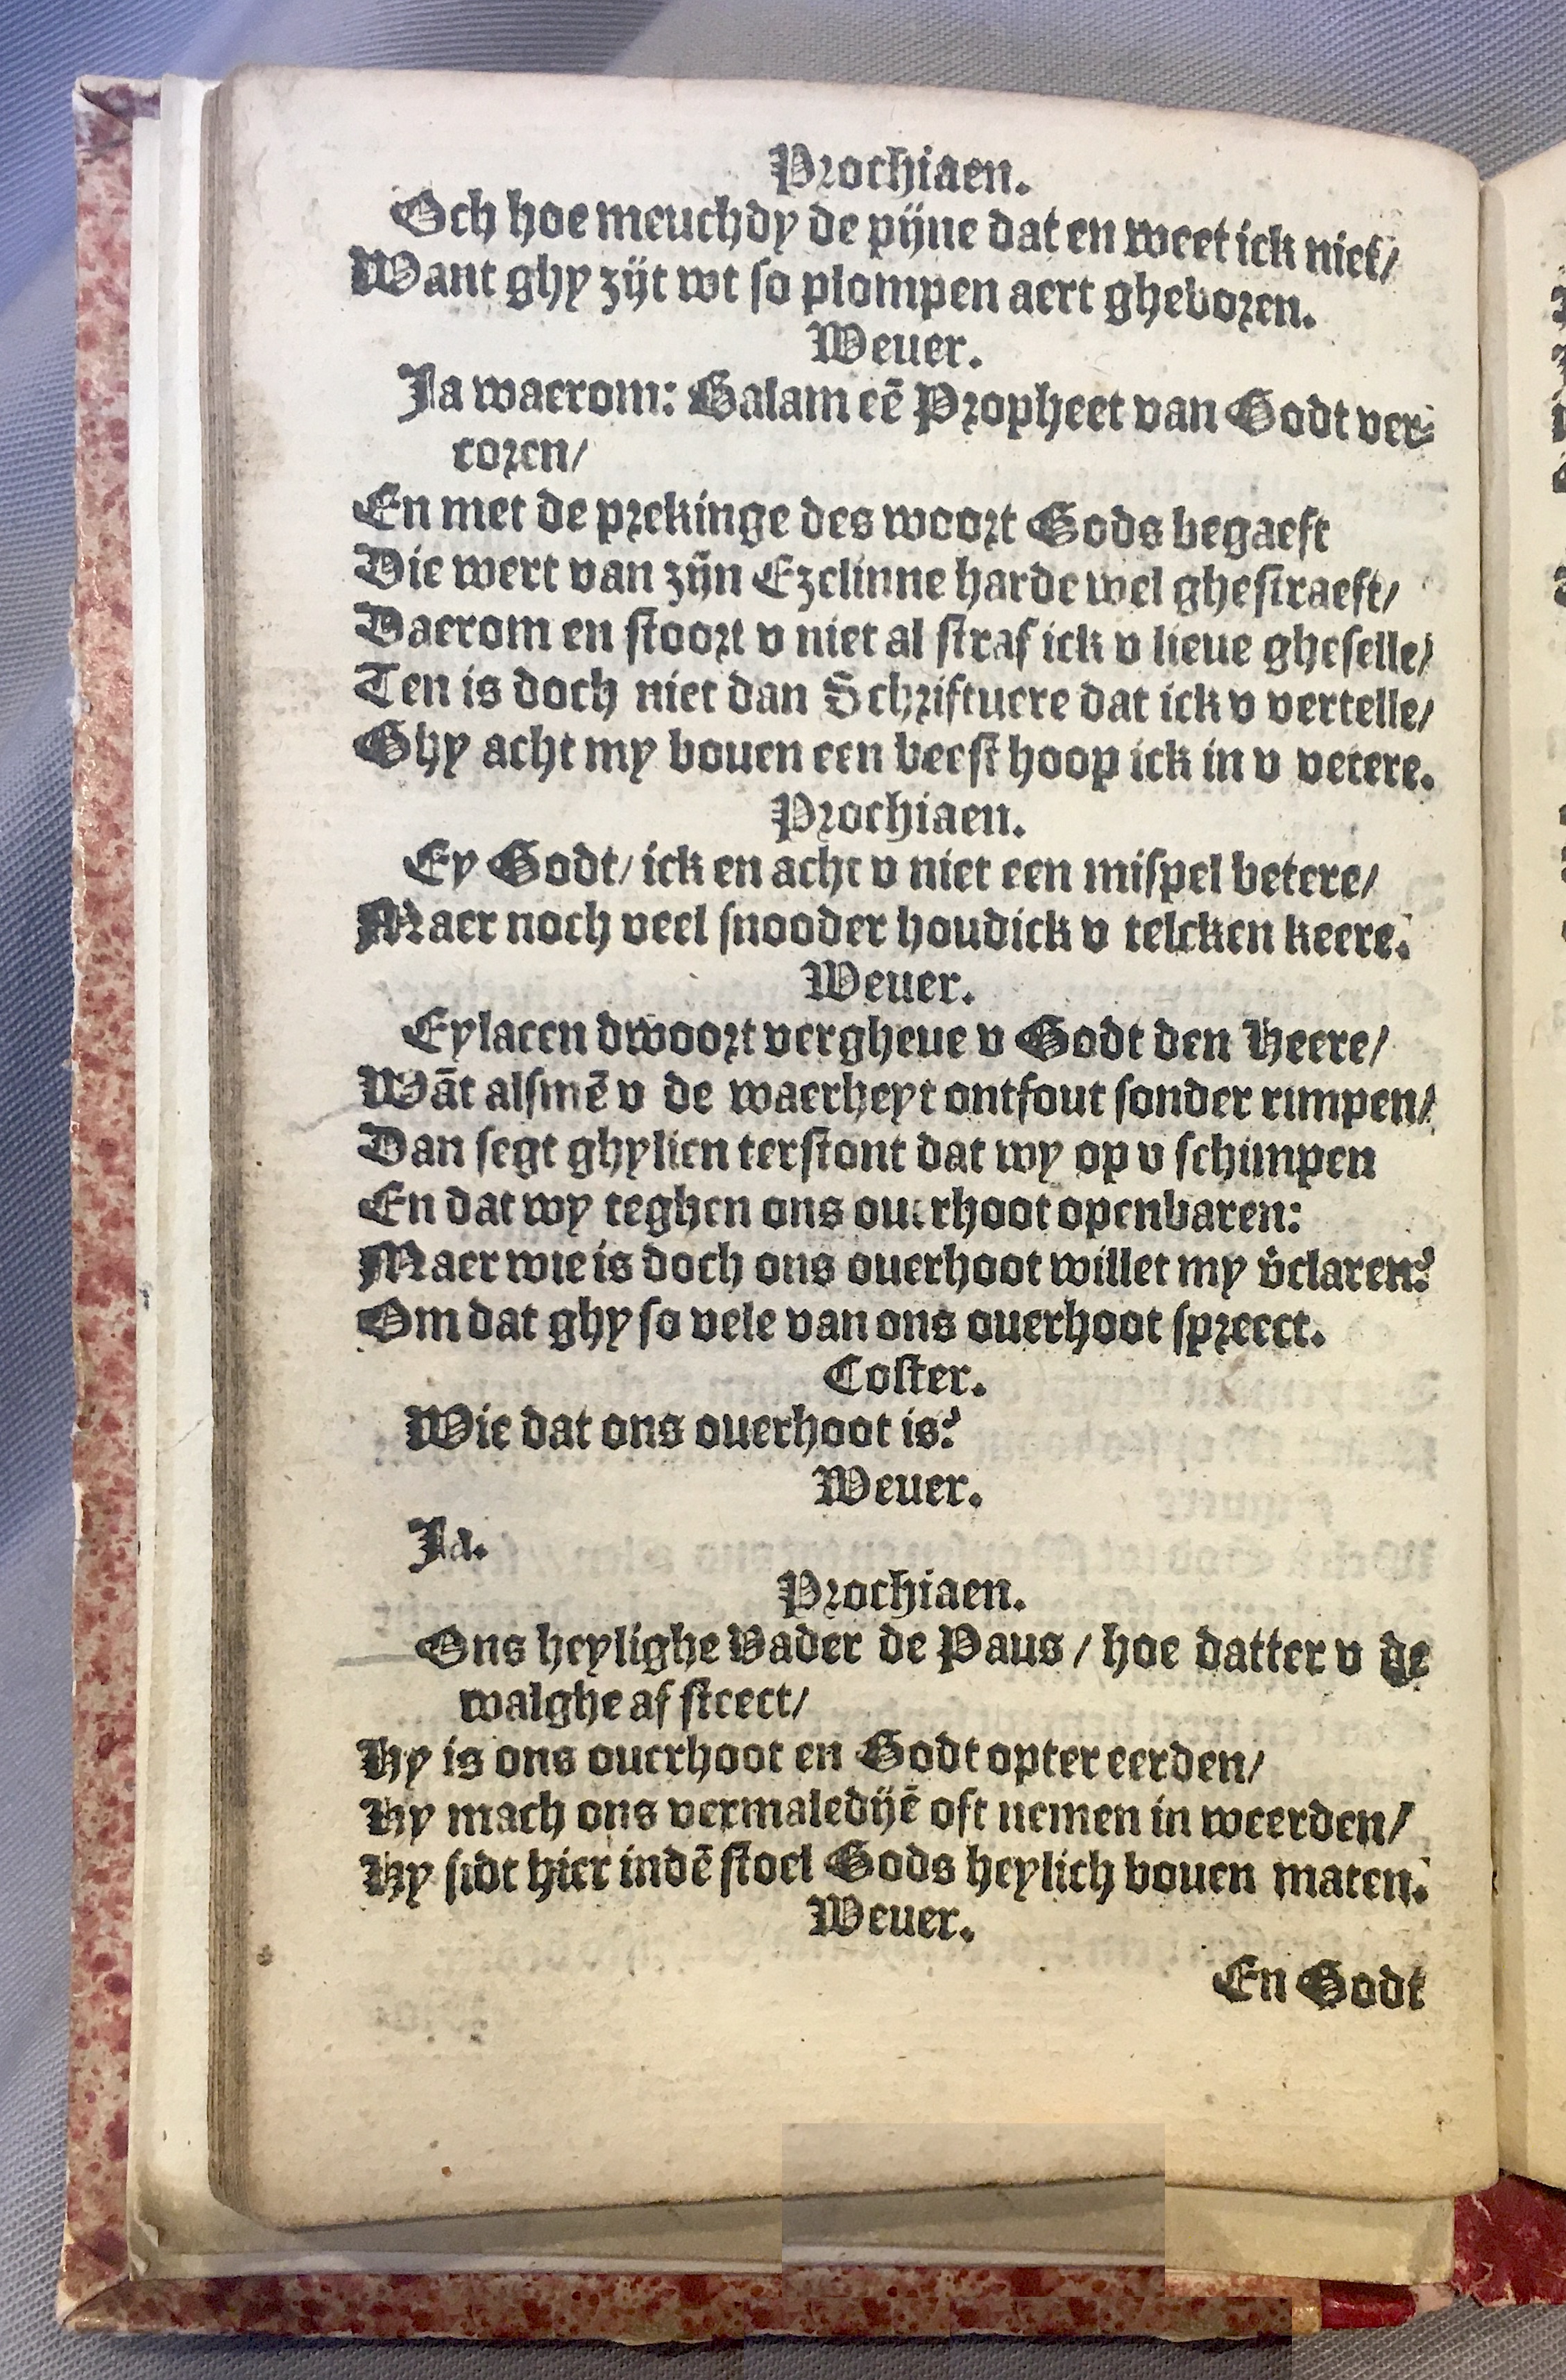 Prochiaen.
Och hoe meuchdy de pijne dat en weet ick niet/
Want ghy zijt wt so plompen aert gheboren.
Weuer.
Ja waerom: Balam eē Propheet van Godt ver-
coren/
En met de prekinge des woort Gods begaeft
Die wert van zijn Ezelinne harde wel ghestraeft/
Daerom en stoort v niet al straf ick v lieue gheselle/
Ten is doch niet dan Schriftuere dat ick v vertelle/
Ghy acht my bouen een beest hoop ick in v vetere.
Prochiaen.
Ey Godt/ ick en acht v niet een mispel betere/
Maer noch veel snooder houdick v telcken keere.
Weuer.
Eylacen dwoort vergheue v Godt den Heere/
Wāt alsmē v de waerheyt ontfout sonder rimpen/
Dan segt ghylien terstont dat wy op v schimpen
En dat wy teghen ons ouerhoot openbaren:
Maer wie is doch ons ouerhoot willet my v̄claren?
Om dat ghy so vele van ons ouerhoot spreect.
Coster.
Wie dat ons ouerhoot is?
Weuer.
Ja.
Prochiaen.
Ons heylighe Vader de Paus / hoe datter v de
walghe af steect/
Hy is ons ouerhoot en Godt opter eerden/
Hy mach ons vermaledijē oft nemen in weerden/
Hy sidt hier indē stoel Gods heylich bouen maten.
Weuer.
En Godt